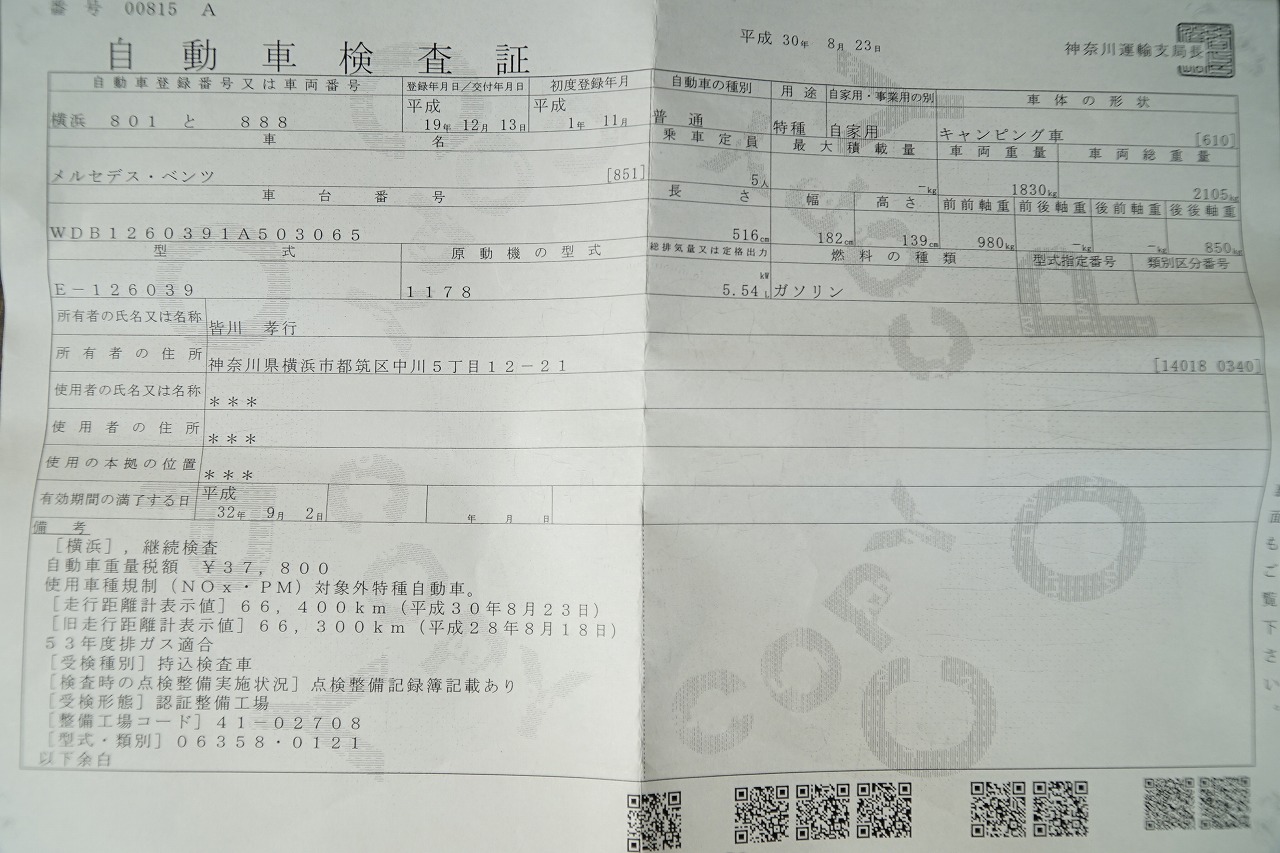 番号 00815 A
自動車検査証
平成 30年 8月 23日
神奈川運輸支局長
自動車登録番号又は車両番号 登録年月日／交付年月日 初度登録年月 自動車の種別 用途 自家用・事業用の別 車体の形状
横浜 801 と 888 平成 19年 12月 13日 平成 1年 11月 普通 特種 自家用 キャンピング車 [610]
車名 乗車定員 最大積載量 車両重量 車両総重量
メルセデス・ベンツ [851] 5人 −kg 1830kg 2105kg
車台番号 長さ 幅 高さ 前前軸重 前後軸重 後前軸重 後後軸重
WDB1260391A503065 516cm 182cm 139cm 980kg −kg −kg 850kg
型式 原動機の型式 総排気量又は定格出力 燃料の種類 型式指定番号 類別区分番号
E−126039 1178 kW 5.54 L ガソリン
所有者の氏名又は名称 皆川 孝行
所有者の住所 神奈川県横浜市都筑区中川5丁目12−21 [14018 0340]
使用者の氏名又は名称 ＊＊＊
使用者の住所 ＊＊＊
使用の本拠の位置 ＊＊＊
有効期間の満了する日 平成 32年 9月 2日 年 月 日
備考
[横浜]，継続検査
自動車重量税額 ￥37，800
使用車種規制（NOx・PM）対象外特種自動車。
[走行距離計表示値] 66，400km（平成30年8月23日）
[旧走行距離計表示値] 66，300km（平成28年8月18日）
53年度排ガス適合
[受検種別] 持込検査車
[検査時の点検整備実施状況] 点検整備記録簿記載あり
[受検形態] 認証整備工場
[整備工場コード] 41−02708
[型式・類別] 06358・0121
以下余白
COPY
COPY
面もご覧下さい。